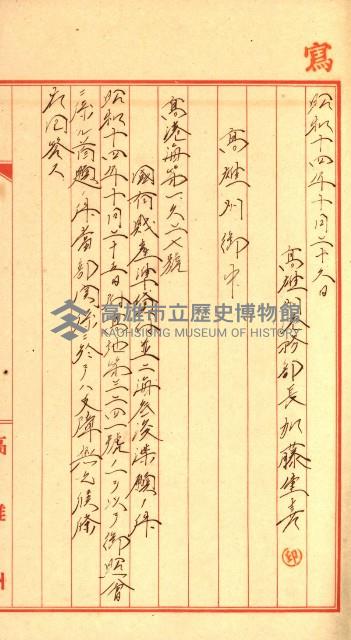 寫
昭和十四年十月二十八日
高雄 務部長 加藤 喜 印
高雄州御中
高港海第一 號
國有財產 並ニ海 浚渫願ノ件
昭和十四年十月二十五日 地第三二四一號ノ 以テ御照會
ニ係ル首題ノ件當部関係ニ於テハ支障無之候條
右回答ス
高雄州
高雄市立歷史博物館
KAOHSIUNG MUSEUM OF HISTORY